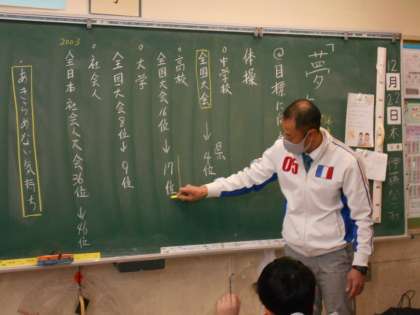 「夢」
@目標に
体操
・中学校
全国大会 → 県4位
・高校
全国大会16位→17位
・大学
全国大会8位→9位
・社会人
2003
全日本社会人大会36位→46位
・あきらめない気持ち
12月
22日
木
05